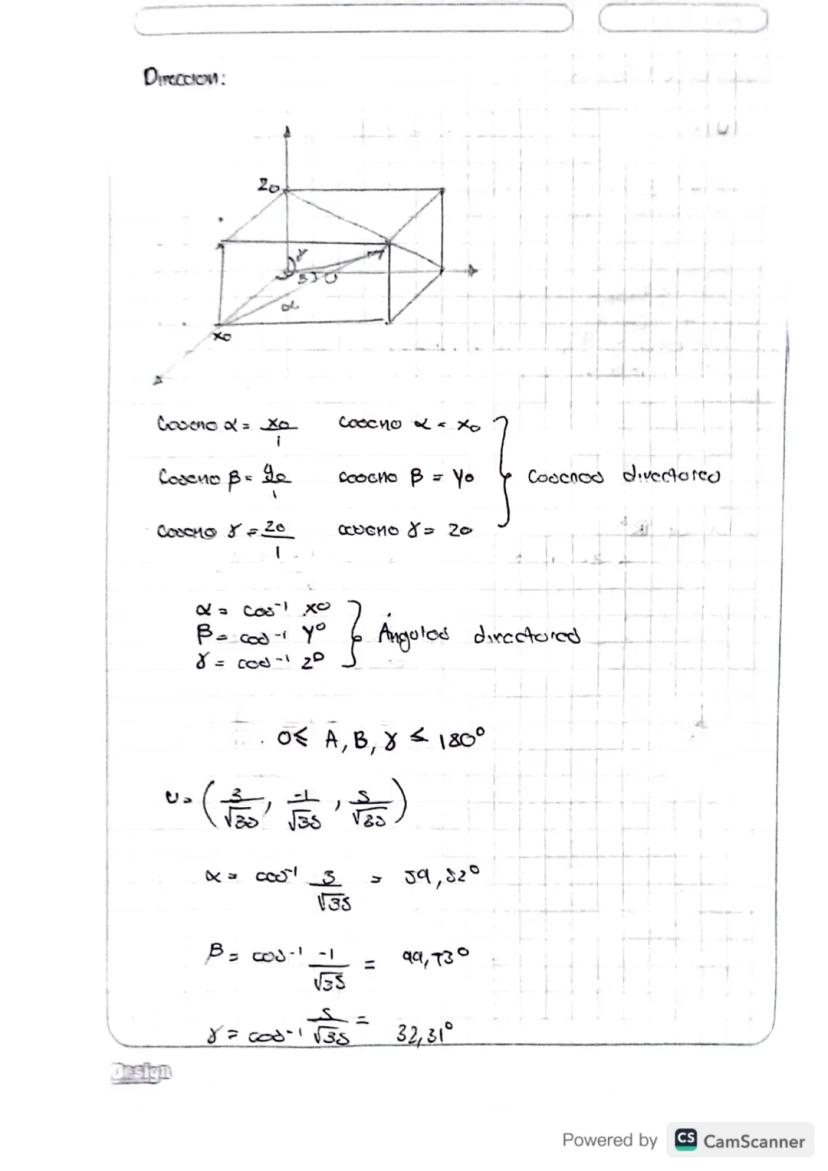 Direccion:
z₀
γ
β
U
α
x₀
Coseno α = x₀/1 coseno α = x₀
Coseno β = y₀/1 coseno β = y₀ } Cosenos directores
Coseno γ = z₀/1 coseno γ = z₀
α = cos⁻¹ x₀
β = cos⁻¹ y₀ } Ángulos directores
γ = cos⁻¹ z₀
0 ≤ A, B, γ ≤ 180°
U = (3/√35, -1/√35, 5/√35)
α = cos⁻¹ 3/√35 = 59,52°
β = cos⁻¹ -1/√35 = 99,73°
γ = cos⁻¹ 5/√35 = 32,31°
Design
Powered by CS CamScanner